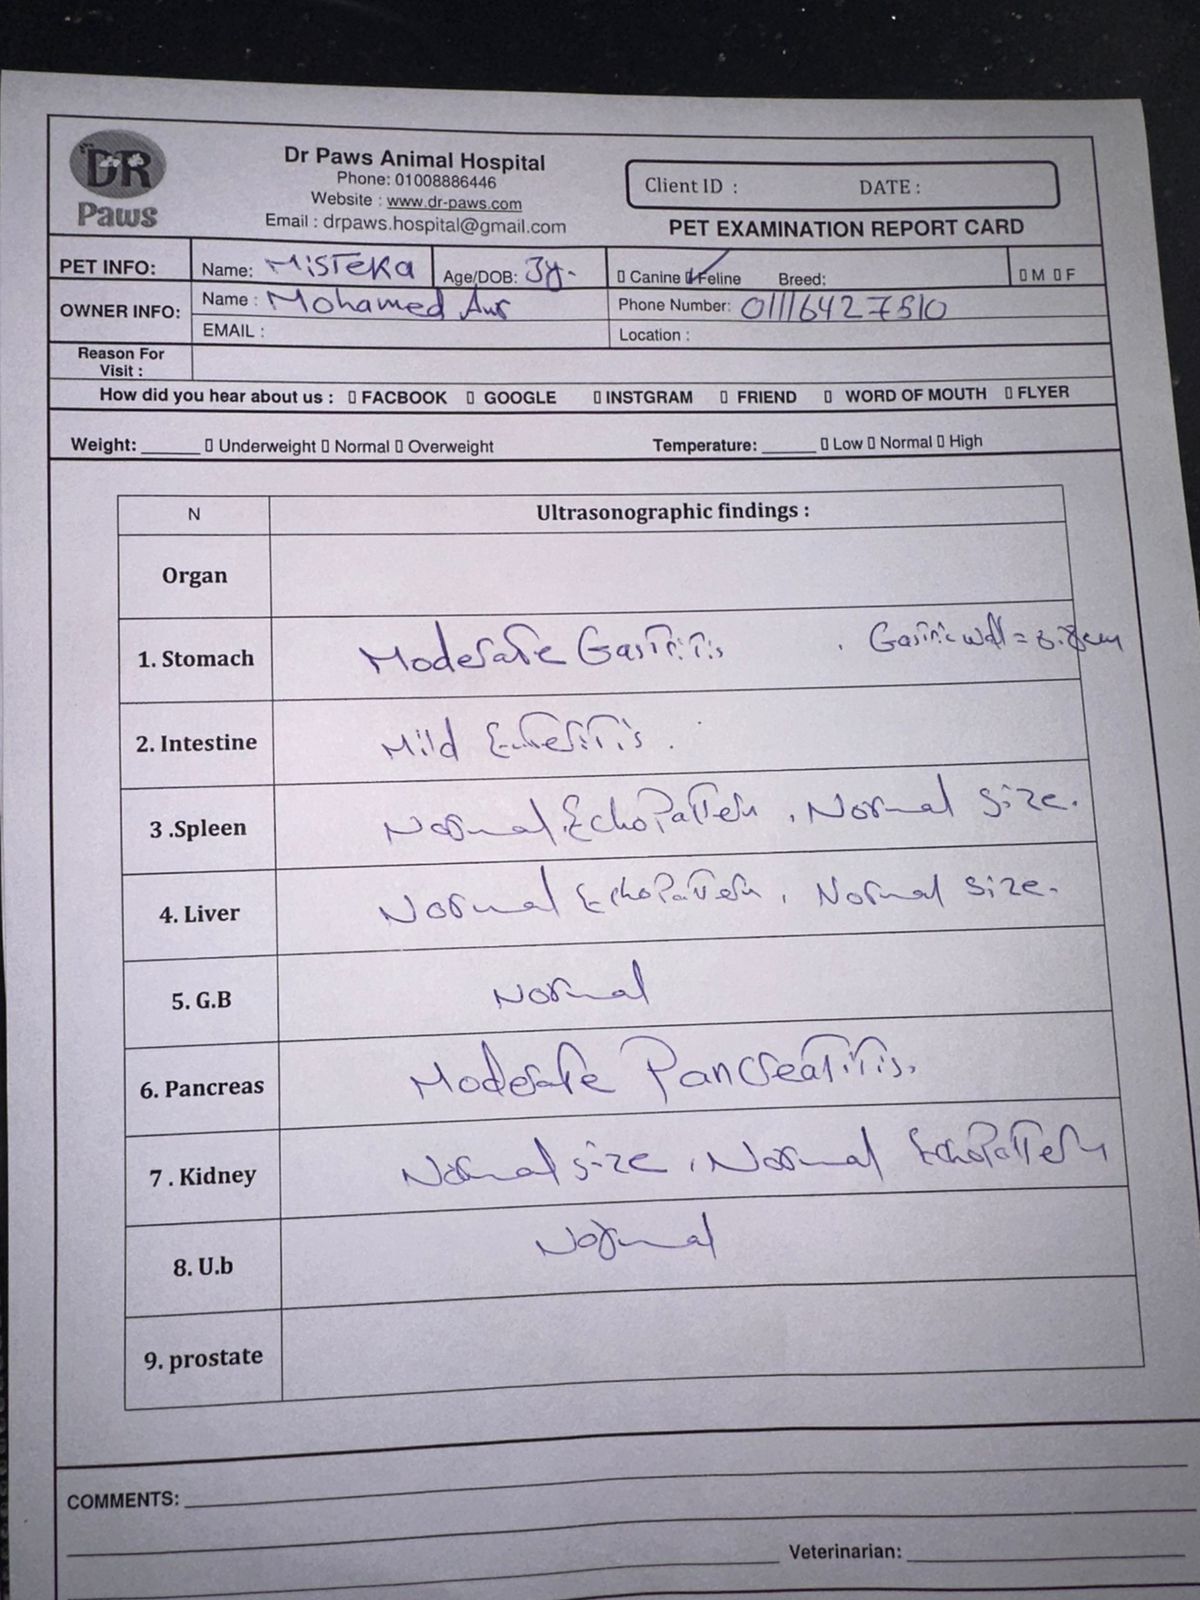 DR
Paws
Dr Paws Animal Hospital
Phone: 01008886446
Website : www.dr-paws.com
Email : drpaws.hospital@gmail.com
Client ID : DATE :
PET EXAMINATION REPORT CARD
PET INFO: Name: Misteka Age/DOB: 3y. Canine Feline Breed: M F
OWNER INFO: Name : Mohamed Phone Number: 01116427510
EMAIL : Location :
Reason For Visit :
How did you hear about us : FACBOOK GOOGLE INSTGRAM FRIEND WORD OF MOUTH FLYER
Weight: Underweight Normal Overweight Temperature: Low Normal High
N Ultrasonographic findings :
Organ
1. Stomach Moderate Gastritis . Gastric wall = cm
2. Intestine Mild Enteritis .
3 .Spleen Normal EchoPattern , Normal size.
4. Liver Normal EchoPattern , Normal size.
5. G.B Normal
6. Pancreas Moderate Pancreatitis.
7 . Kidney Normal size , Normal EchoPattern
8. U.b Normal
9. prostate
COMMENTS:
Veterinarian: